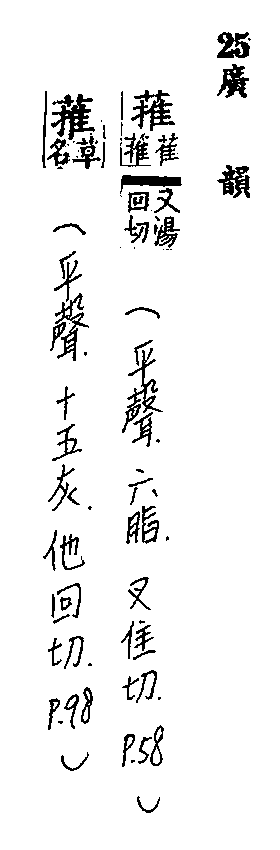 25廣韻
蓷 萑蓷 又湯回切 (平聲.六脂.叉隹切.P.58)
蓷 草名 (平聲.十五灰.他回切.P.98)